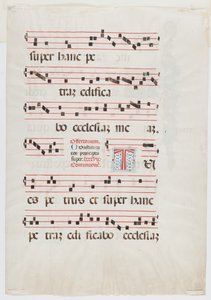 super hanc pe
tram edifica
bo ecclesiam me am.
Offertorium.
Communione.
T
u
es pe trus et super hanc
pe tram edi ficabo ecclesiam